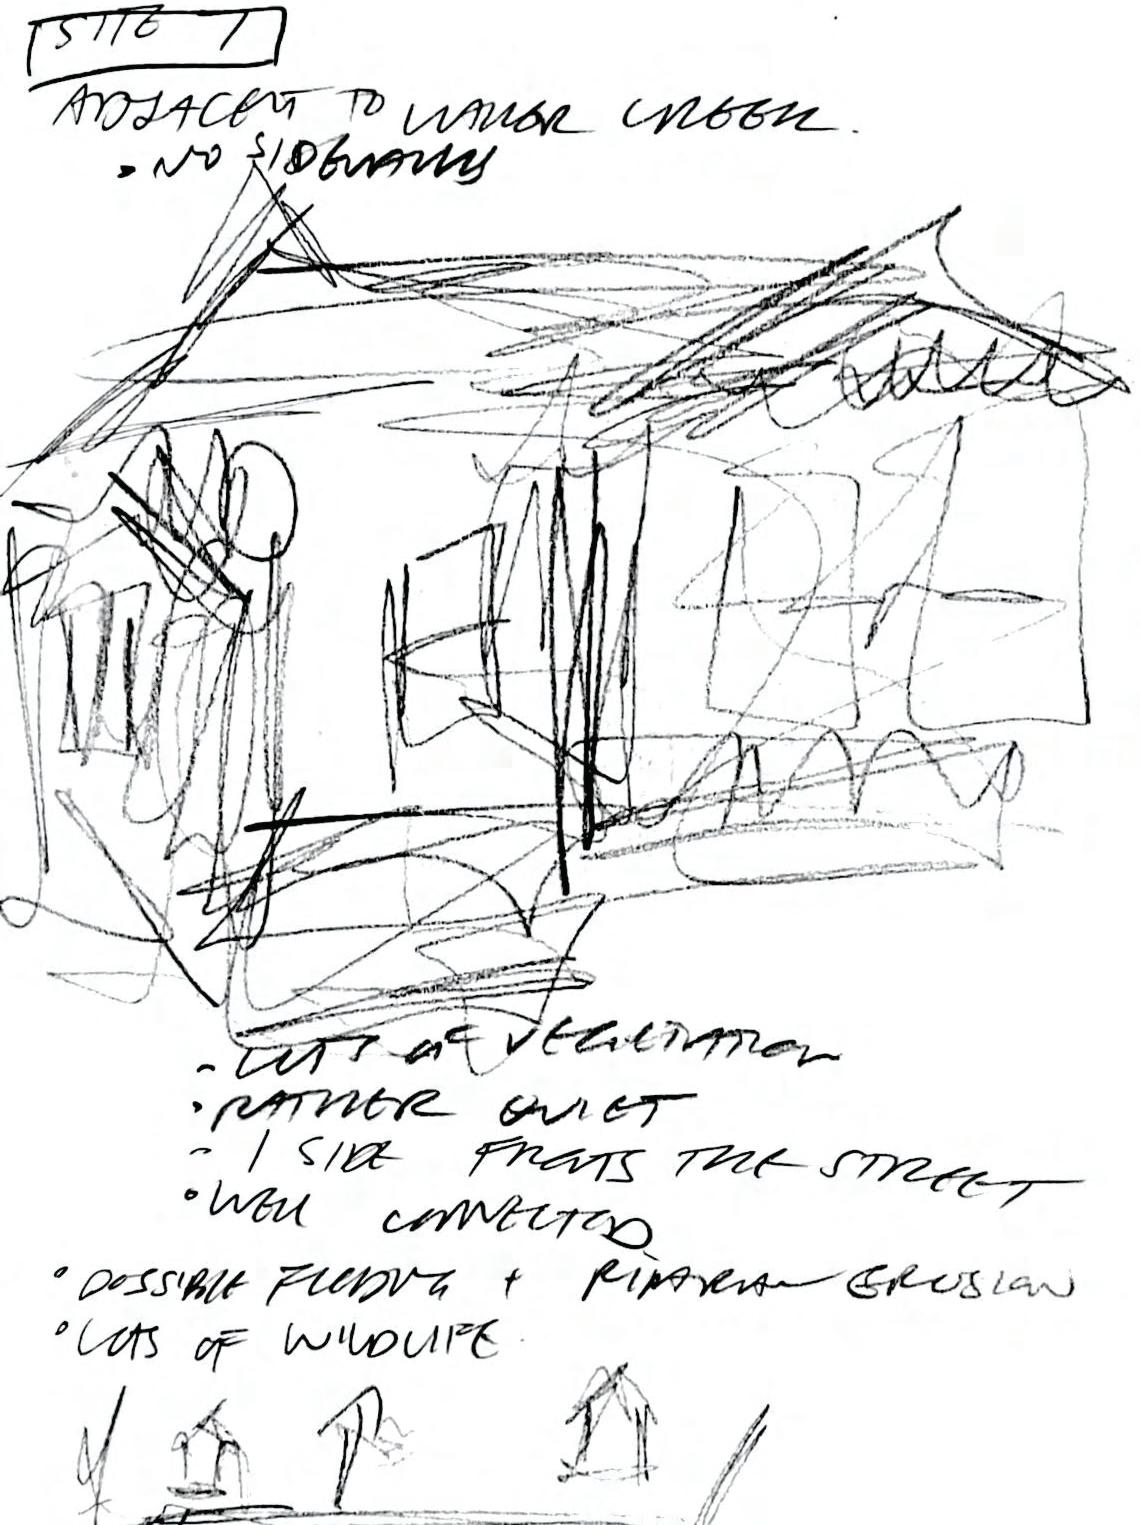 SITE 1
ADJACENT TO WALLER CREEK.
• NO SIDEWALKS
- LOTS OF VEGETATION
• RATHER QUIET
- 1 SIDE FRONTS THE STREET
• WELL CONNECTED
• POSSIBLE FLOODING + RIPARIAN EROSION
• LOTS OF WILDLIFE.